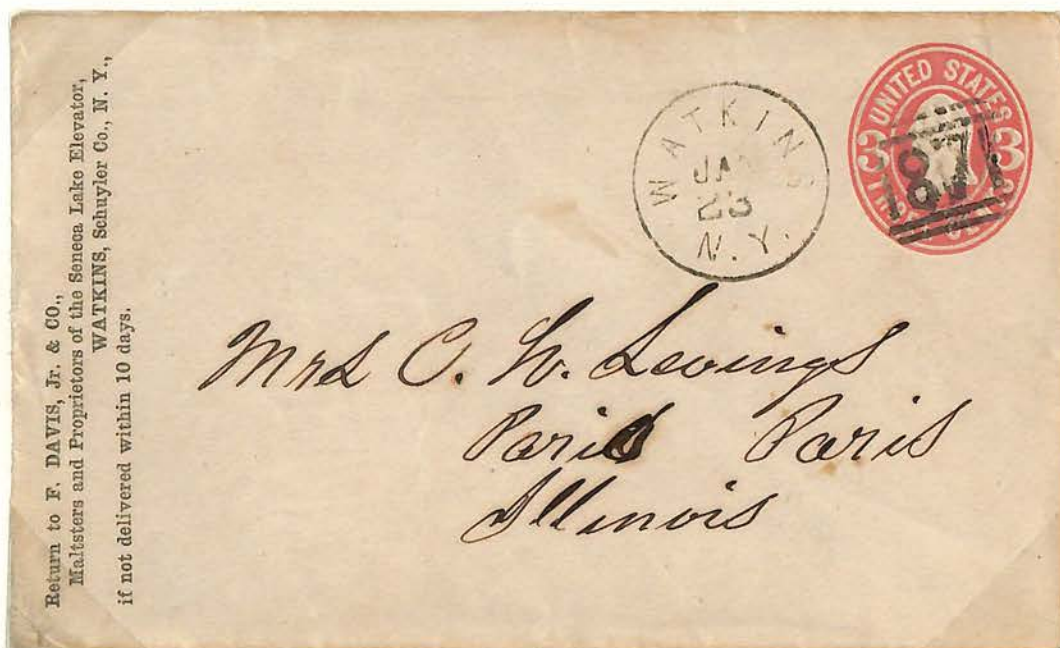 Return to F. DAVIS, Jr. & CO.,
Maltsters and Proprietors of the Seneca Lake Elevator,
WATKINS, Schuyler Co., N. Y.,
if not delivered within 10 days.
WATKINS
JAN
23
N.Y.
UNITED STATES
3 3
THREE CENTS
87
Mrs C. W. Levings
Paris Paris
Illinois